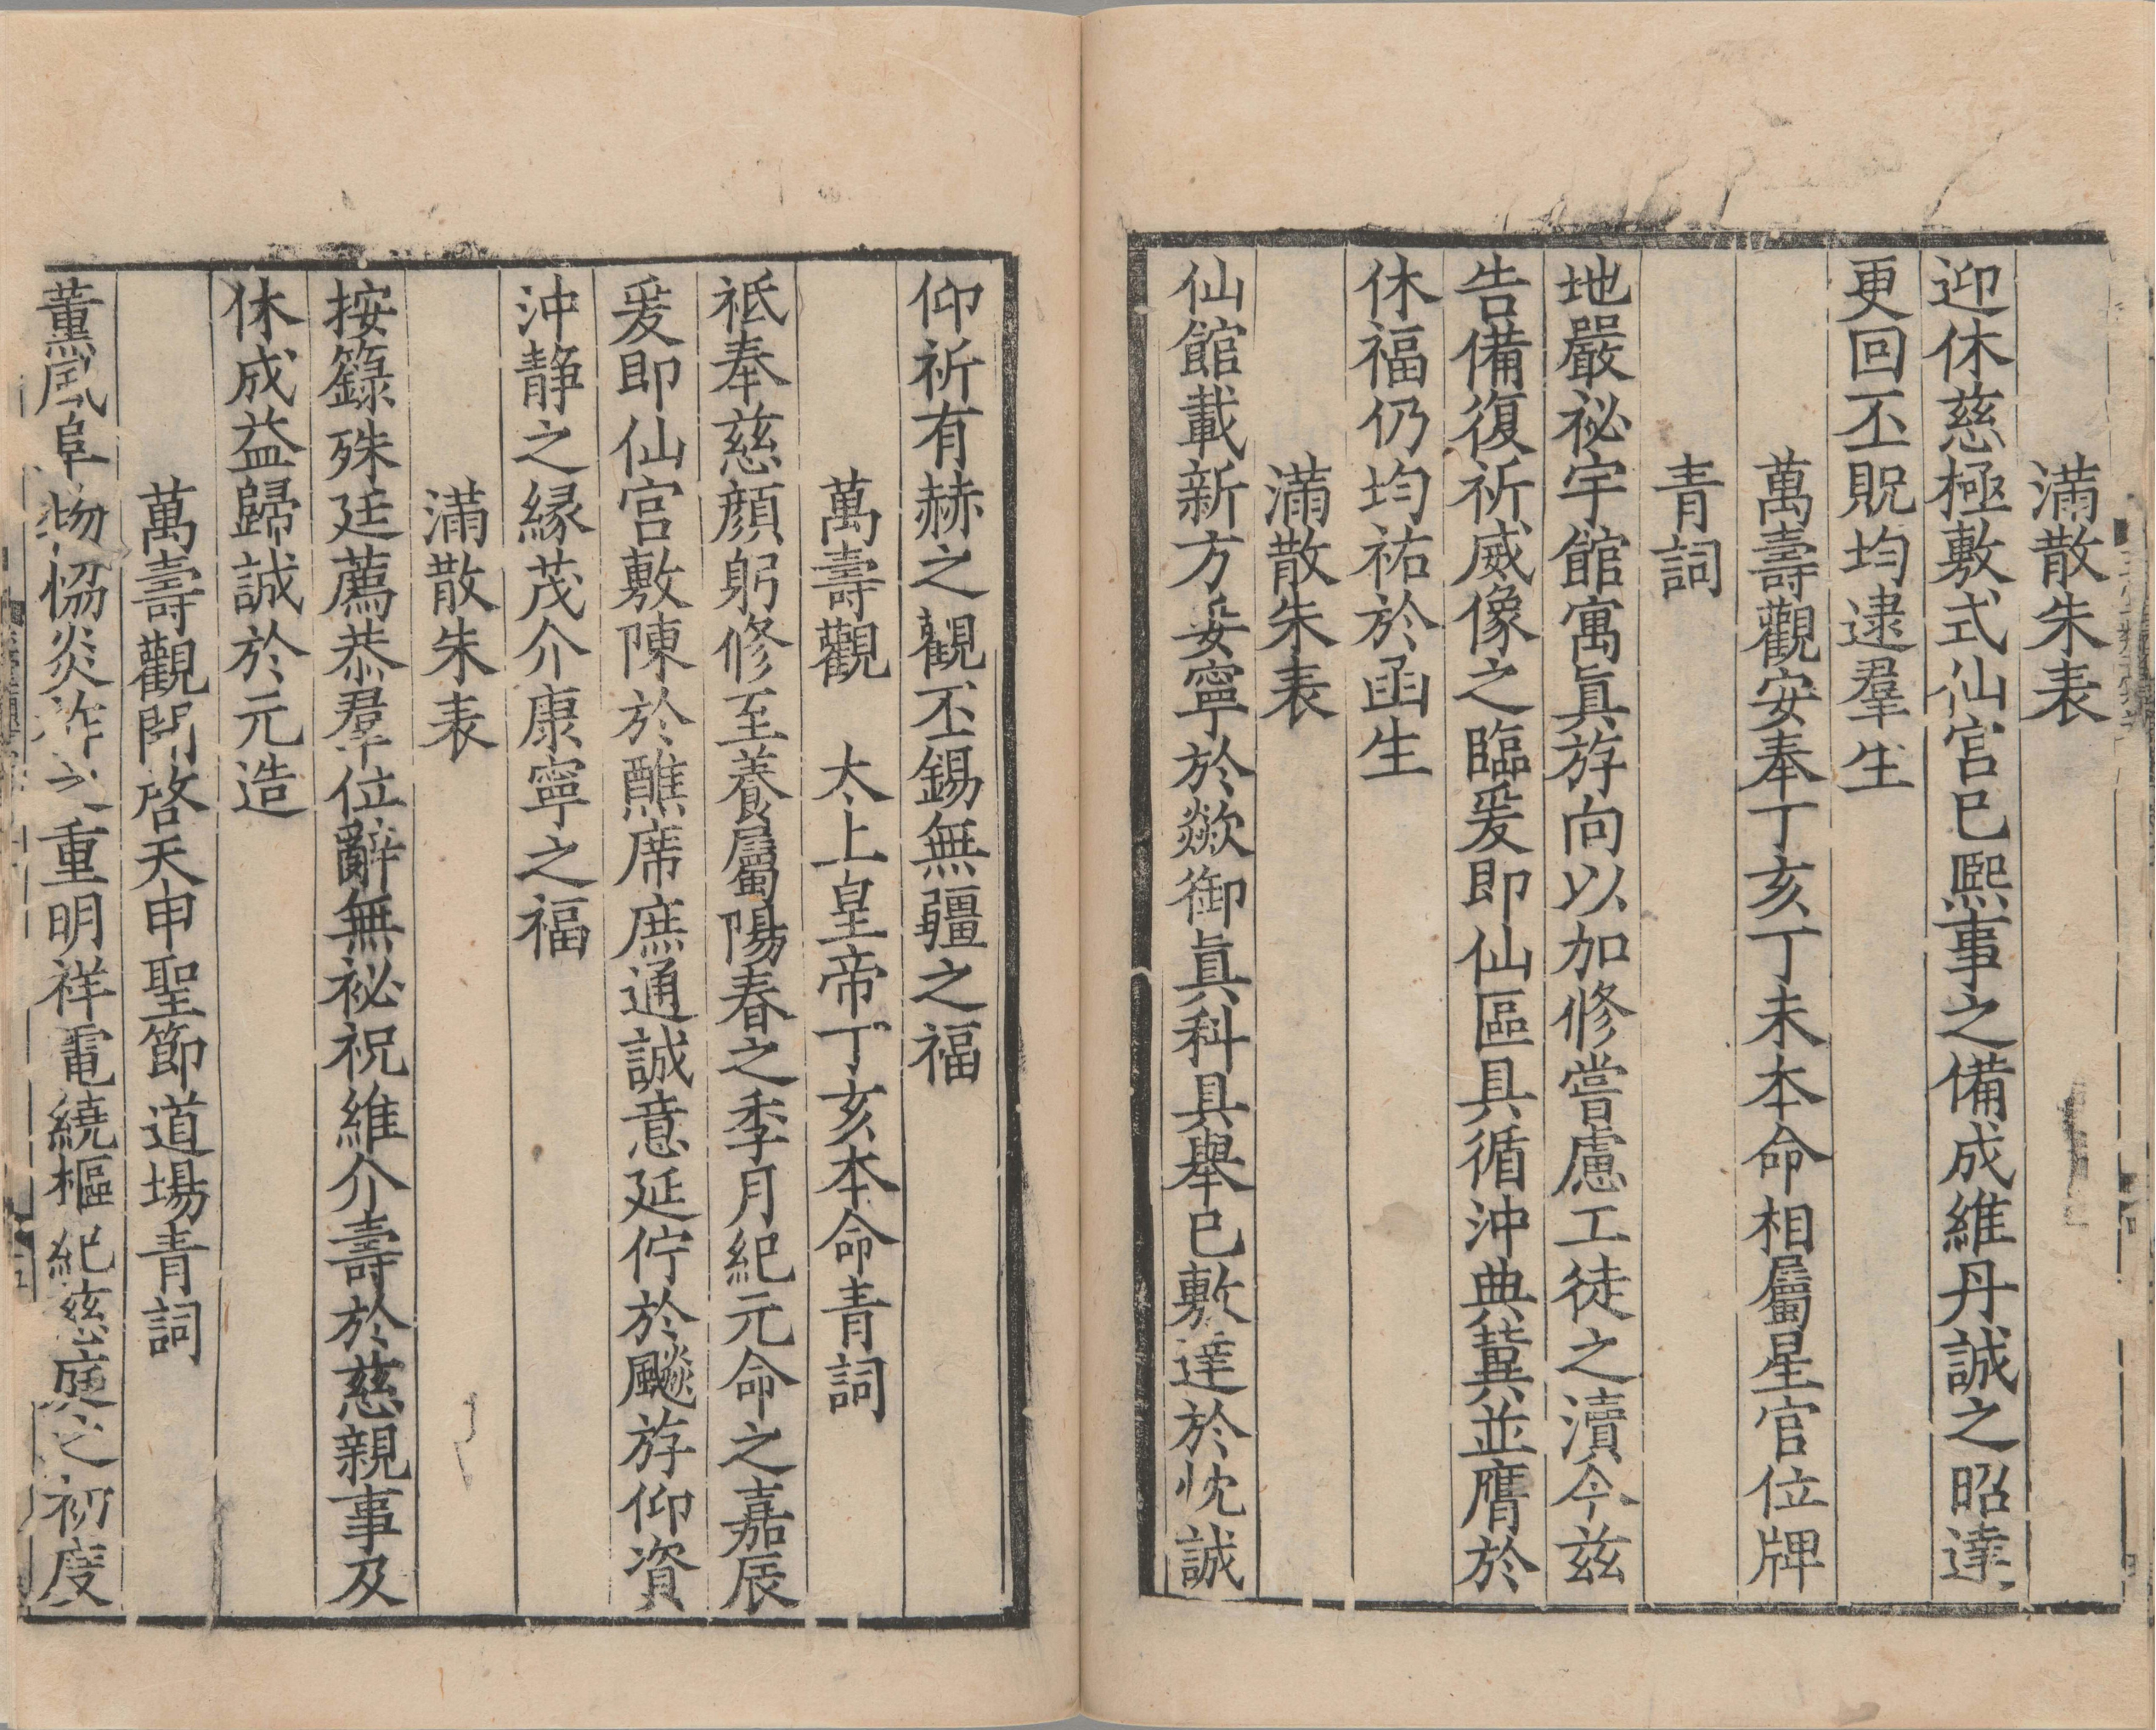 滿散朱表
迎休慈極敷式仙宮已熙事之備成維丹誠之昭達
更回丕貺均逮羣生
萬壽觀安奉丁亥丁未本命相屬星官位牌
青詞
地嚴祕宇館寓眞游向以加修嘗慮工徒之瀆今兹
告備復祈威像之臨爰即仙區具循沖典冀並膺於
休福仍均祐於函生
滿散朱表
仙館載新方妥寧於歘御眞科具舉已敷達於忱誠
仰祈有赫之觀丕錫無疆之福
萬壽觀　太上皇帝丁亥本命青詞
祇奉慈顔躬修至養屬陽春之季月紀元命之嘉辰
爰即仙宮敷陳於醮席庶通誠意延佇於飈游仰資
沖静之縁茂介康寧之福
滿散朱表
按籙殊廷薦恭羣位辭無祕祝維介壽於慈親事及
休成益歸誠於元造
萬壽觀開啓天申聖節道場青詞
薰風阜物恊炎祚之重明祥電繞樞紀慈庭之初度